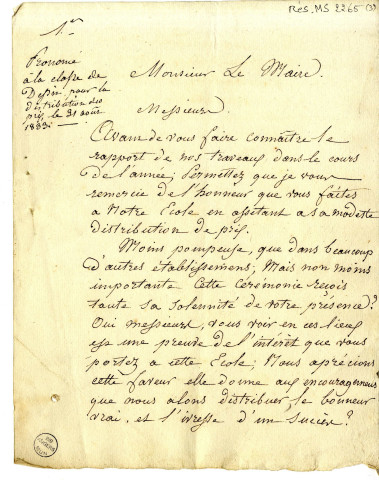 Res. MS 2265 (3)
1er
Prononcé
à la classe de
Dessin pour la
distribution des
prix le 31 août
1833.
Monsieur Le Maire.
Messieurs
Avant de vous faire connaître le
rapport de nos traveaux dans le cours
de l'année; Permettez que je vous
remercie de l'honneur que vous faites
a Notre Ecole en assitant a sa modeste
distribution de prix.
Moins pompeuse, que dans beaucoup
d'autres établissemens; Mais non moins
importante Cette Cérémonie reçois
toute sa solemnité de votre présence?
Oui messieurs, vous voir en ces lieux
est une preuve de l'intérêt que vous
portez a cette Ecole; Nous aprécions
cette faveur elle donne aux encouragemens
que nous alons distribuer, le bonheur
vrai, et l'ivresse d'un succès?